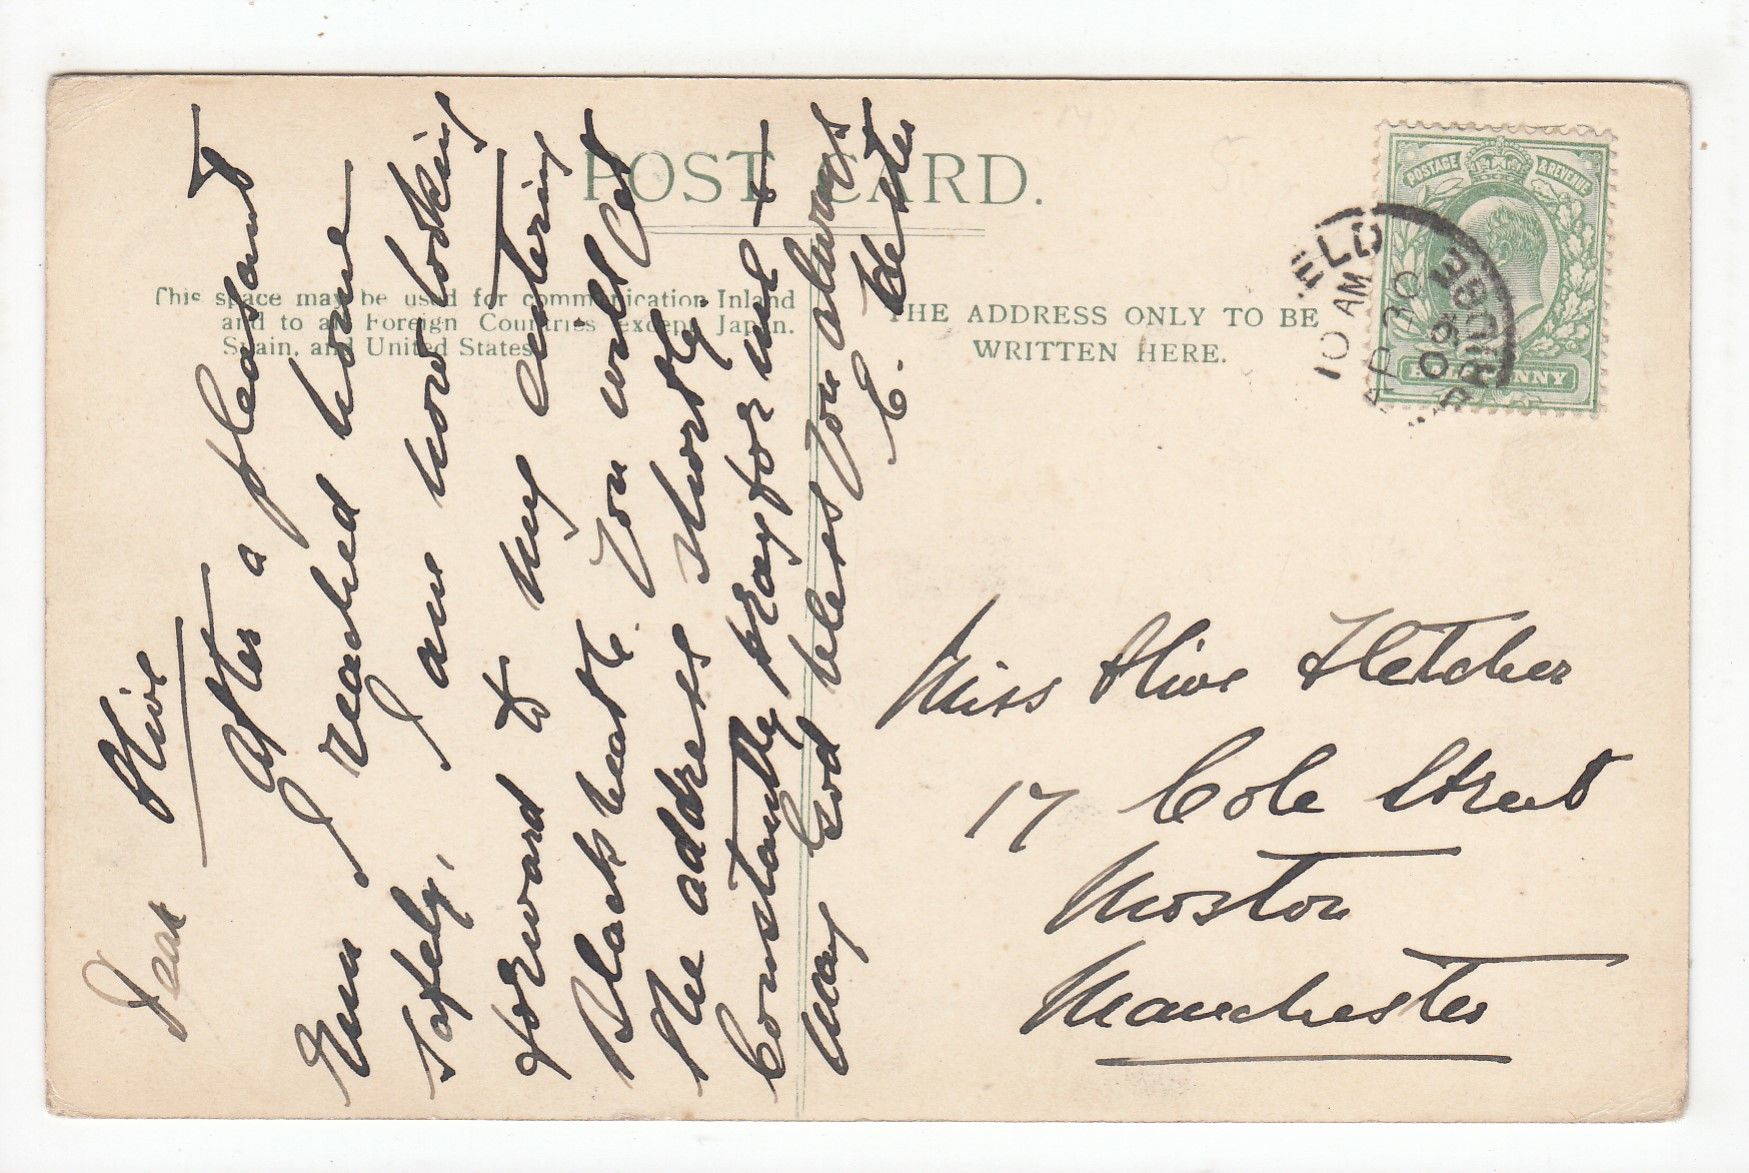 POST CARD.
This space may be used for communication Inland
and to all Foreign Countries except Japan,
Spain, and United States.
THE ADDRESS ONLY TO BE
WRITTEN HERE.
POSTAGE & REVENUE
HALFPENNY
10 AM
AP 30
06
Dear Olive
After a pleasant
run I reached home
safely, I am now looking
forward to my entering
Blackheath. You will get
the address shortly.
Constantly pray for me &
May God bless you always
Miss Olive Fletcher
17 Cole Street
Moston
Manchester